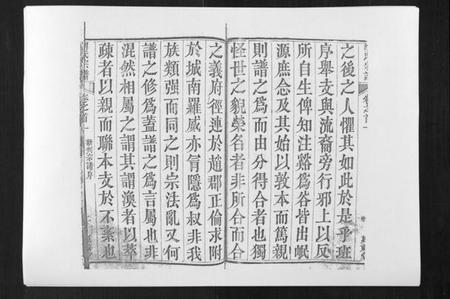 之後之人懼其如此於是乎班
序舉支與流裔旁行邪上以反
所自生俾知注谿為谷皆出岷
源庶念及其始以敦本而篤親
則譜之為而由分得合者也獨
怪世之貌榮名者非所合而合
之義府徑連於趙郡正倫求附
於城南羅威亦冐隱為叔非我
族類强而同之則宗法亂又何
譜之修為蓋譜之為言屬也非
混然相屬之謂其謂渙者以萃
疎者以親而聯本支於不紊也